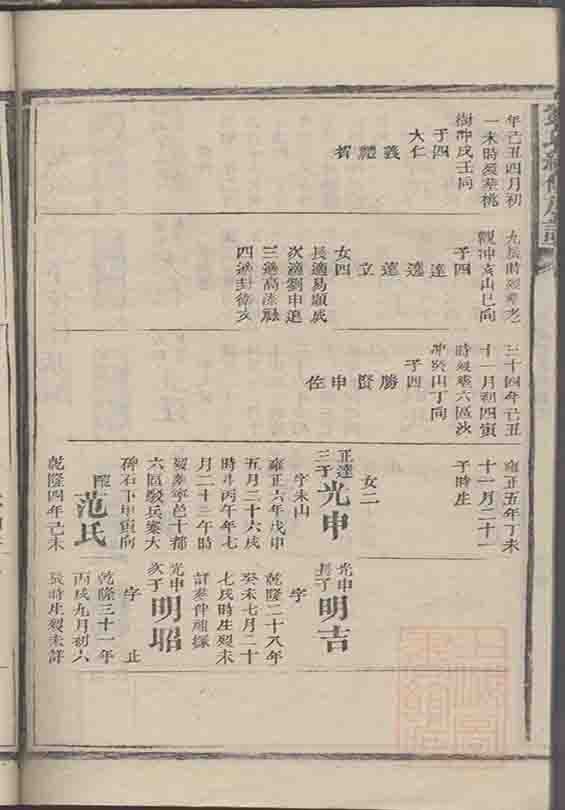 年己丑四月初
一未時歿葬桃
樹冲戌壬向
子四
大仁
義
禮
智
九辰時歿葬老
觀冲亥山巳向
子四
達
達
達
立
女四
長適易顯成
次適劉申進
三適高
四適封
三十四年己丑
十一月初四寅
時歿葬六區
冲癸山丁向
子四
勝
賢
申
佐
雍正五年丁未
十一月二十一
子時生
女二
正達
三子光申
字未山
雍正六年戊申
五月二十六戌
時斗丙午年七
月二十三午時
歿葬寧邑十都
六區殿兵寨大
碑石下甲寅向
配范氏
乾隆四年己未
光申
長子明吉
字
乾隆二十八年
癸未七月二十
七辰時生歿未
詳葬仲祖
光申
次子明昭
字止
乾隆三十一年
丙戌九月初六
長時生歿未詳